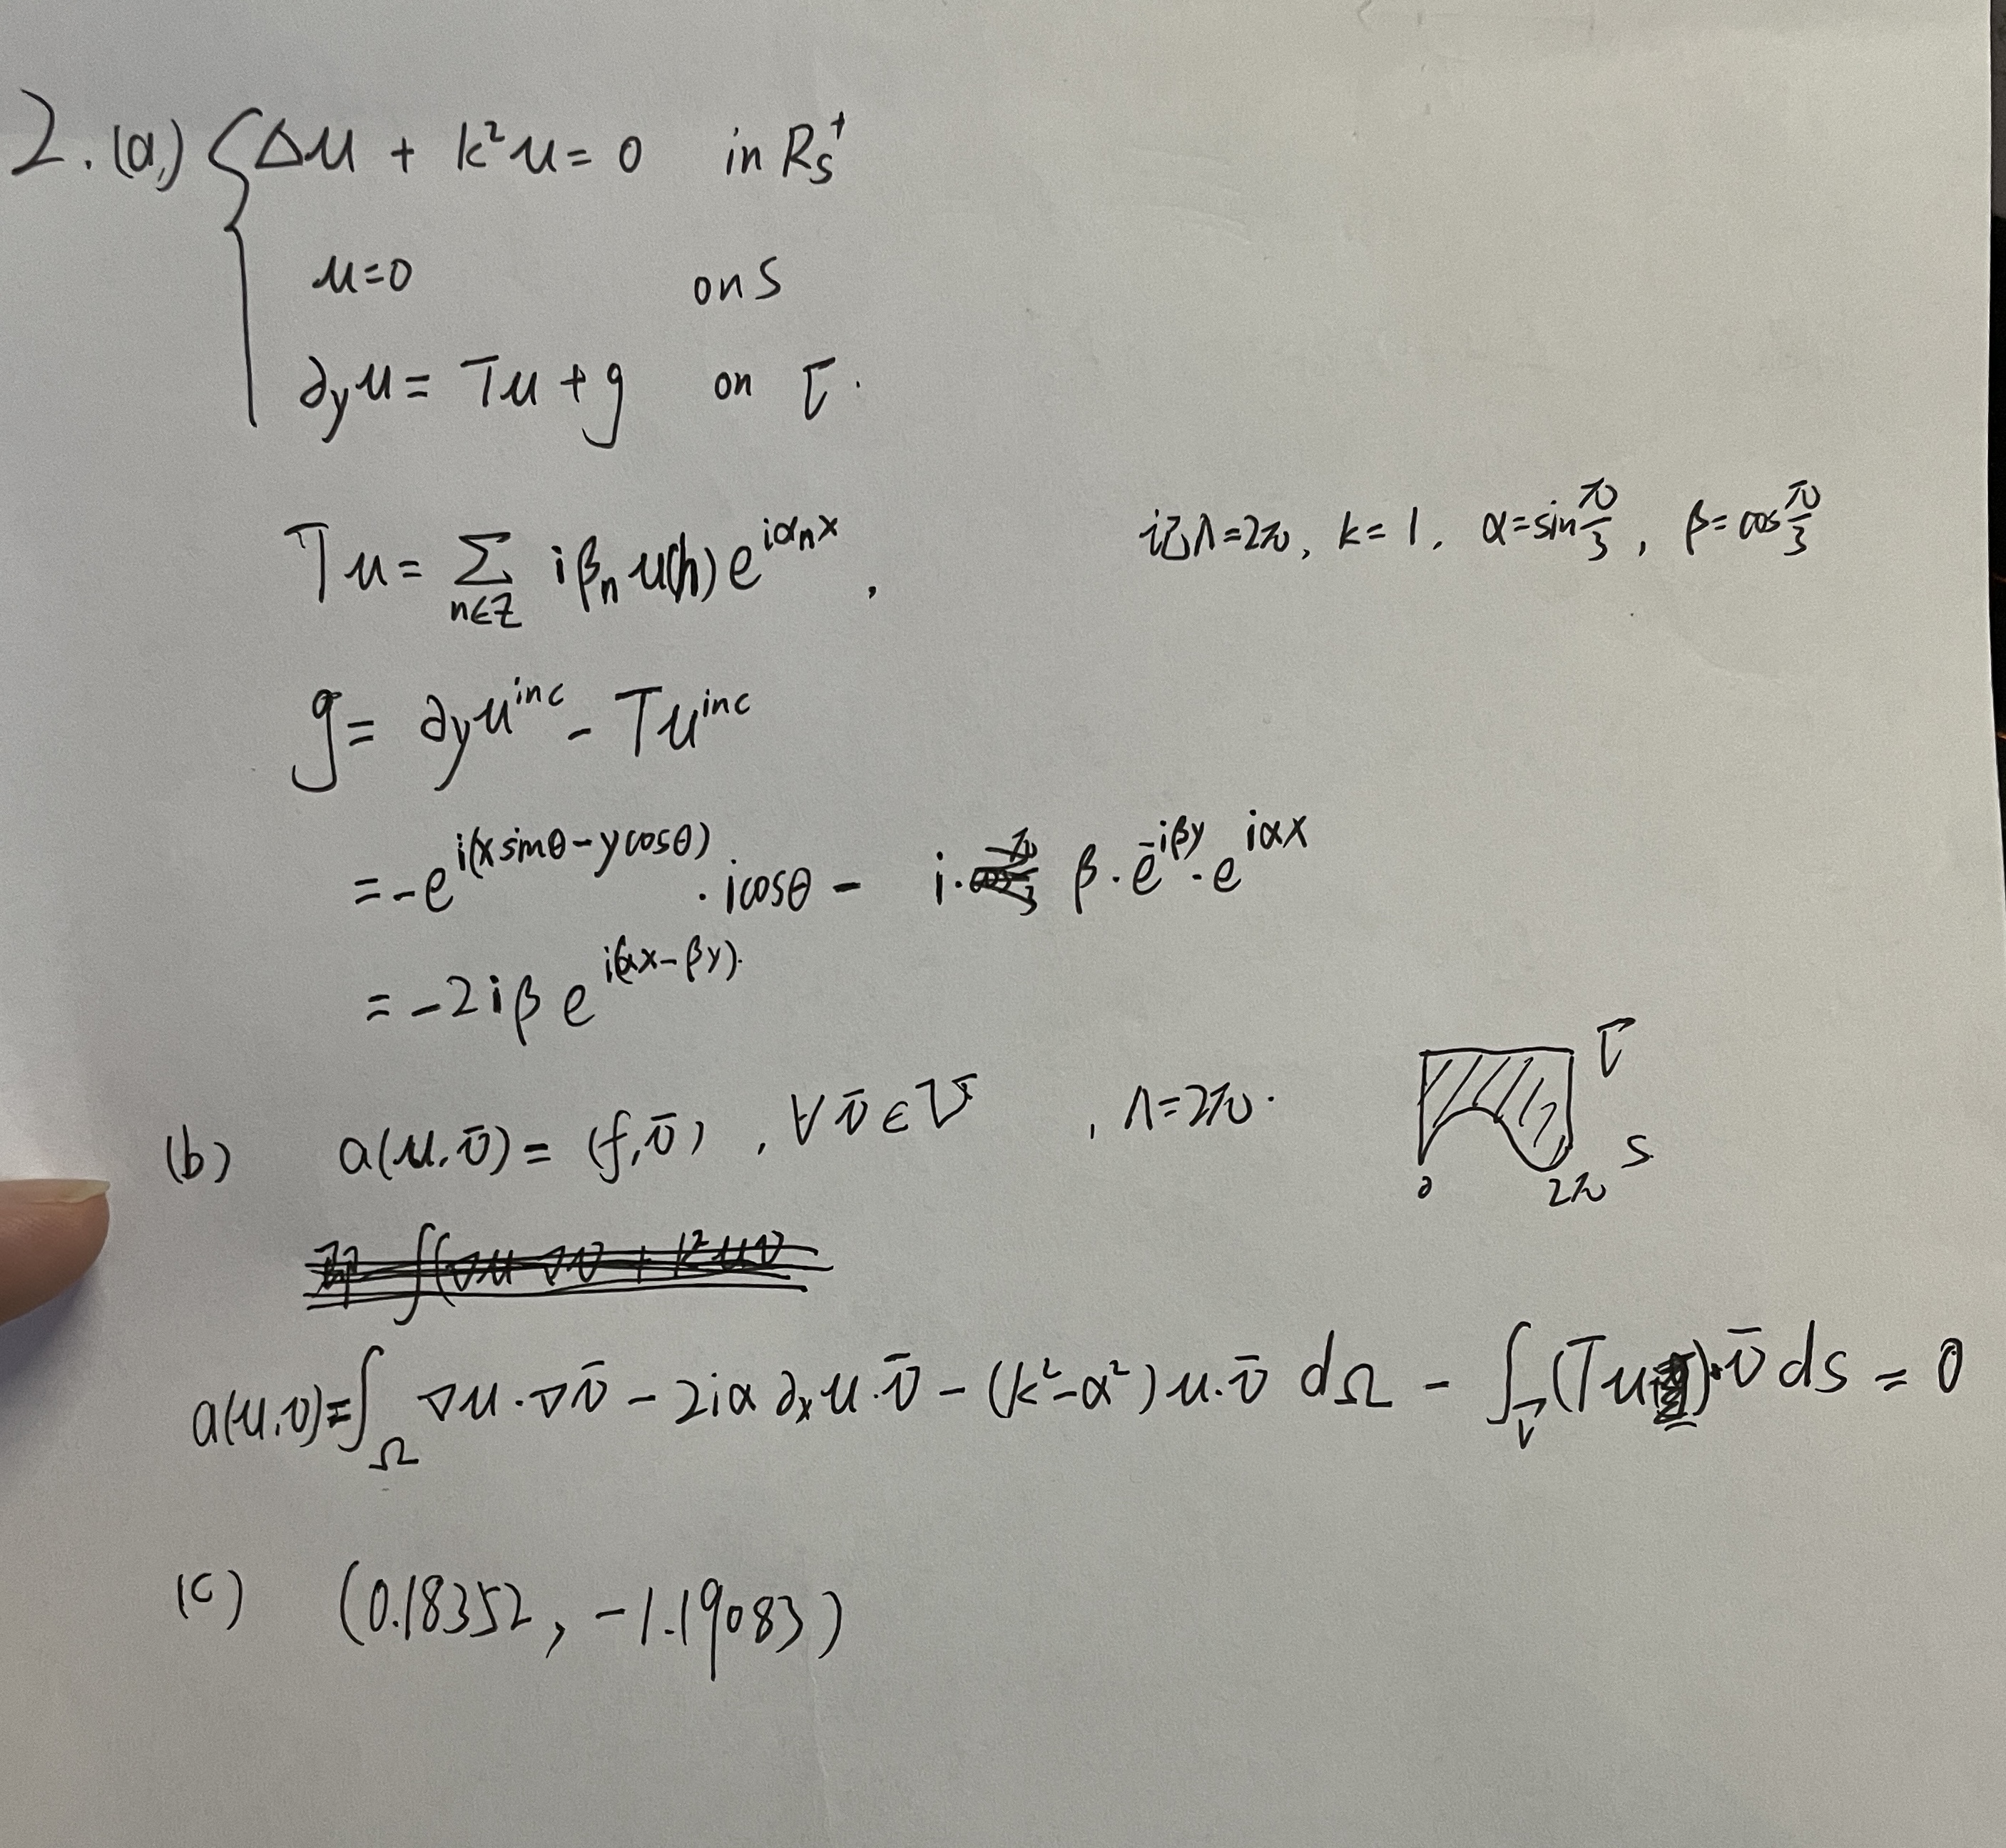 2. (a) { Δu + k²u = 0 in R_S^+
u=0 on S
∂_y u = Tu + g on Γ.
Tu = Σ_{n∈Z} iβ_n u(h) e^{iα_n x} , 记Λ=2π, k=1, α=sin π/3, β=cos π/3
g = ∂_y u^{inc} - Tu^{inc}
= -e^{i(x sinθ - y cosθ)} · i cosθ - i · β · e^{-iβy} · e^{iαx}
= -2iβ e^{i(αx-βy)}.
(b) a(u, v̄) = (f, v̄), ∀ v̄ ∈ V , Λ=2π.
Γ
S
0 2π
a(u,v) = ∫_Ω ∇u·∇v̄ - 2iα ∂_x u·v̄ - (k²-α²) u·v̄ dΩ - ∫_Γ (Tu)·v̄ ds = 0
(c) (0.18352, -1.19083)